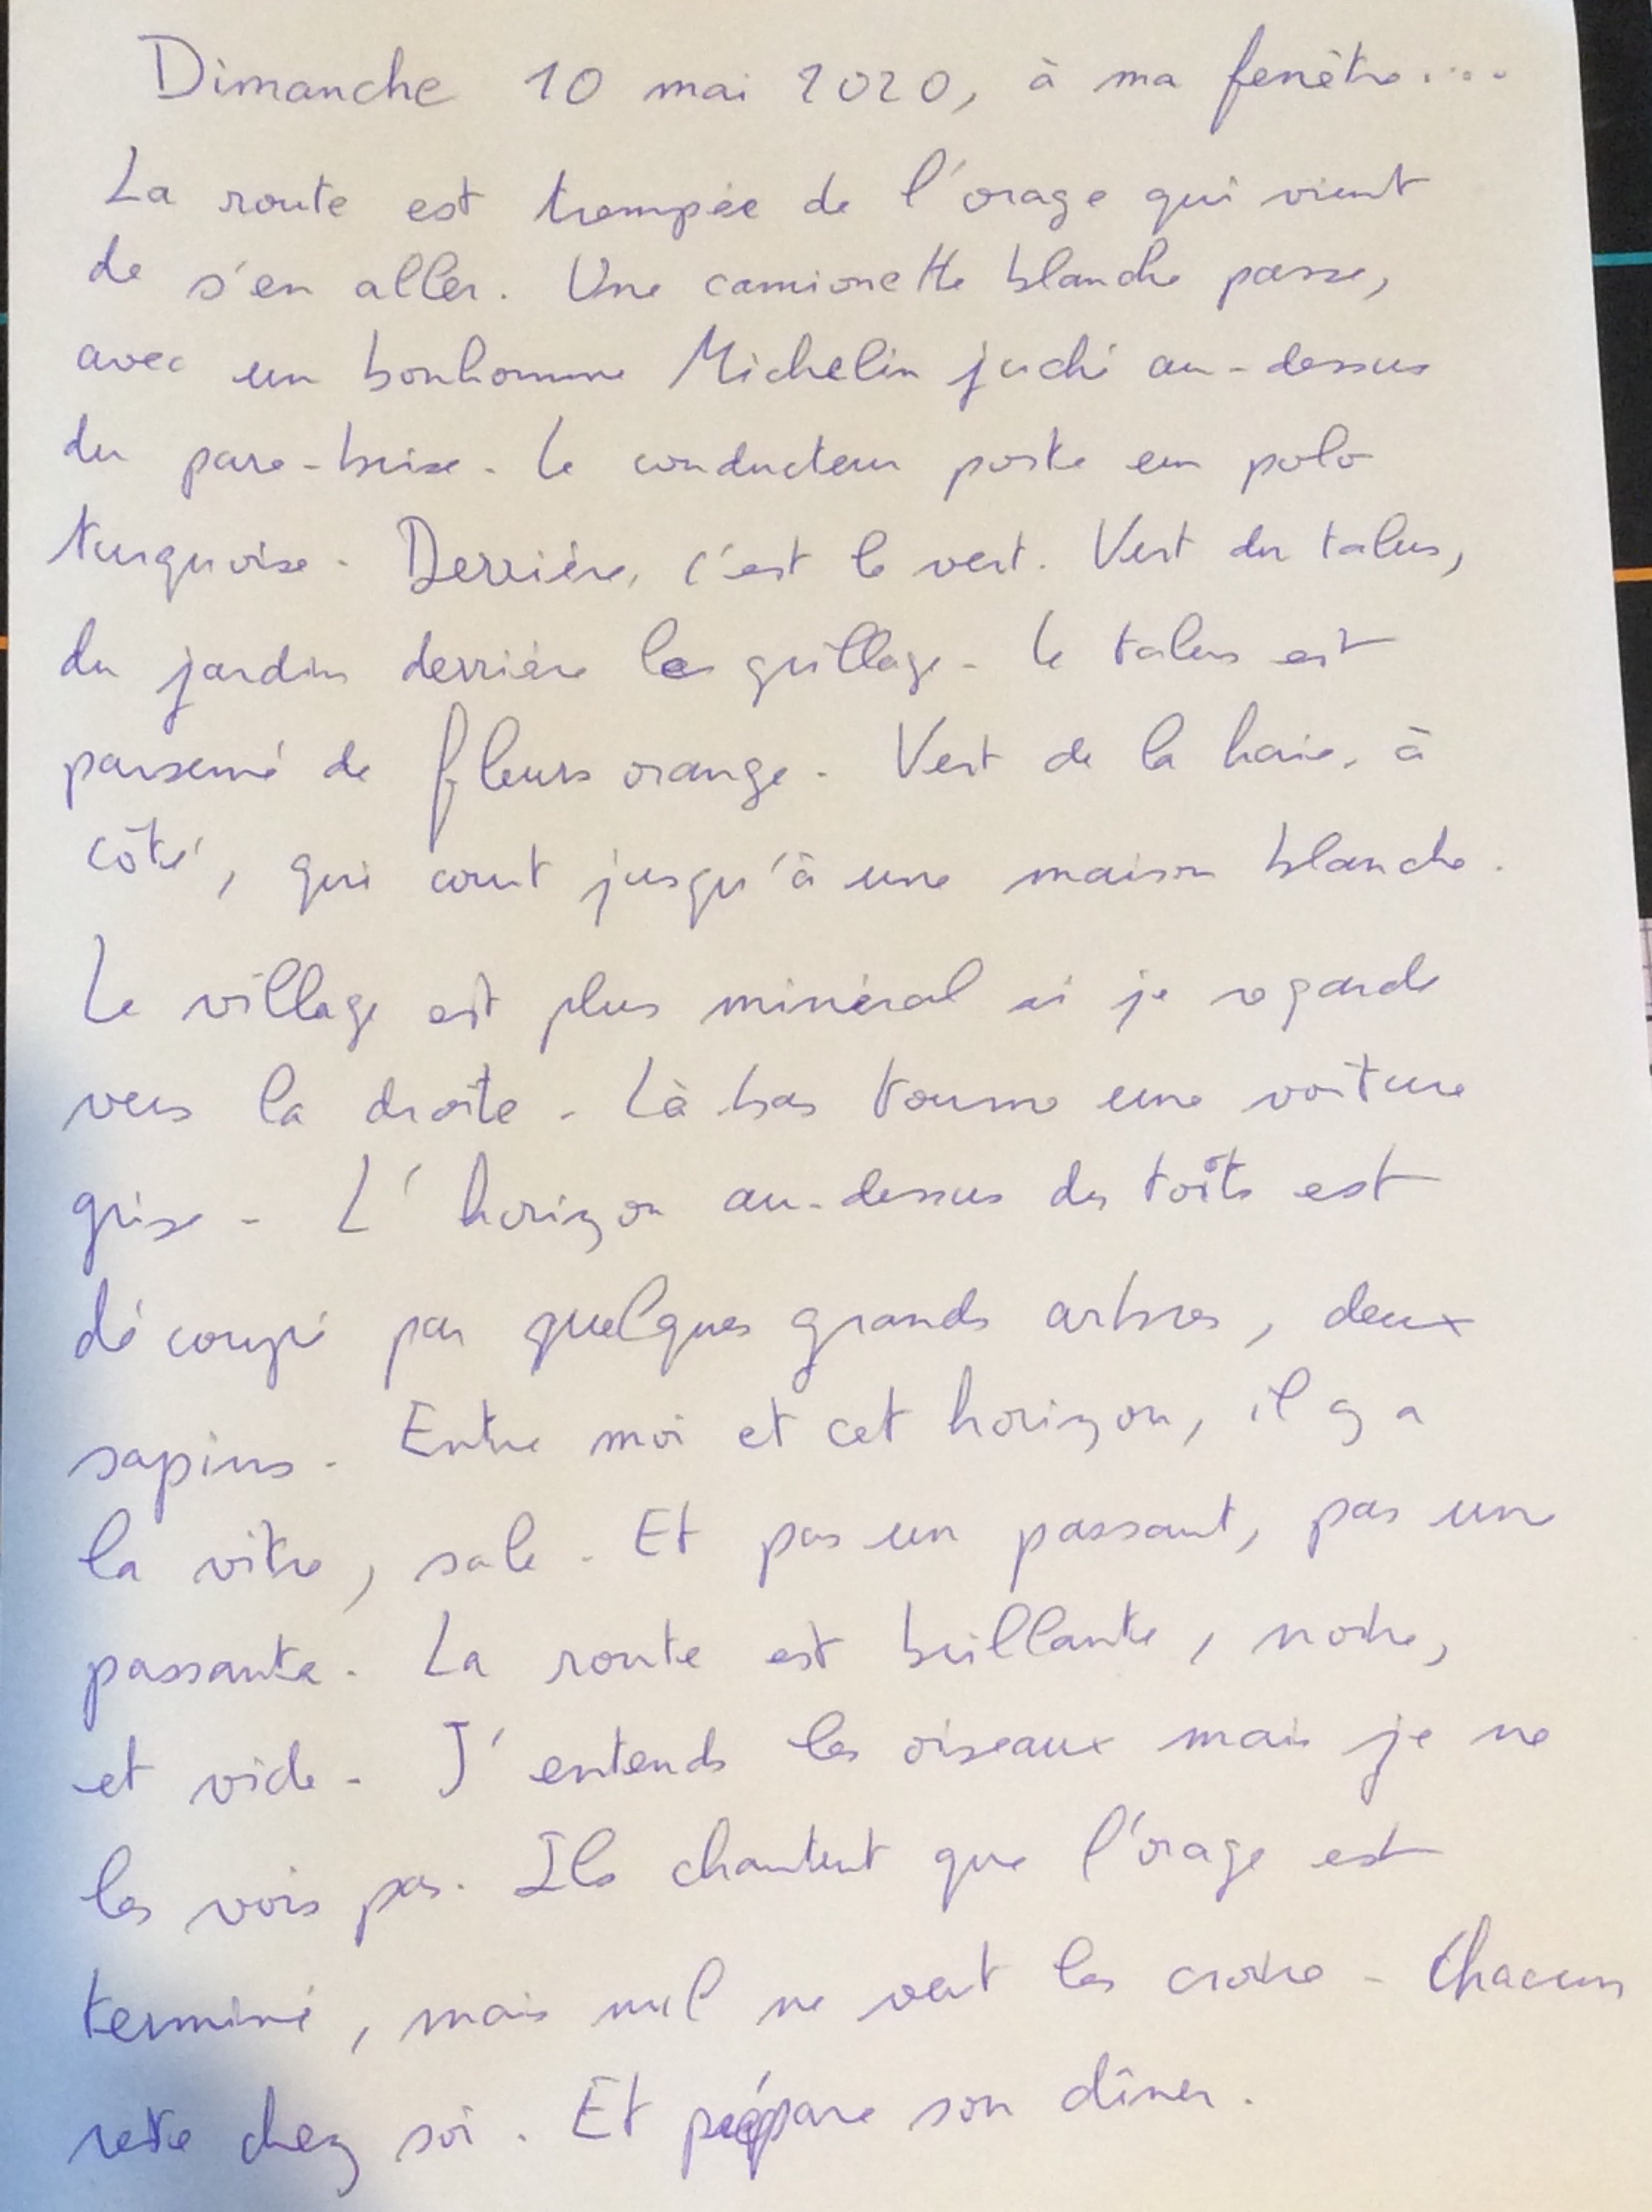 Dimanche 10 mai 2020, à ma fenêtre....
La route est trempée de l'orage qui vient
de s'en aller. Une camionette blanche passe,
avec un bonhomme Michelin juché au-dessus
du pare-brise. Le conducteur porte un polo
turquoise. Derrière, c'est le vert. Vert du talus,
du jardin derrière le grillage. Le talus est
parsemé de fleurs orange. Vert de la haie, à
côté, qui court jusqu'à une maison blanche.
Le village est plus minéral si je regarde
vers la droite. Là bas tourne une voiture
grise. L'horizon au-dessus des toîts est
découpé par quelques grands arbres, deux
sapins. Entre moi et cet horizon, il y a
la vitre, sale. Et pas un passant, pas une
passante. La route est brillante, noire,
et vide. J'entends les oiseaux mais je ne
les vois pas. Ils chantent que l'orage est
terminé, mais nul ne veut les croire. Chacun
reste chez soi. Et prépare son dîner.